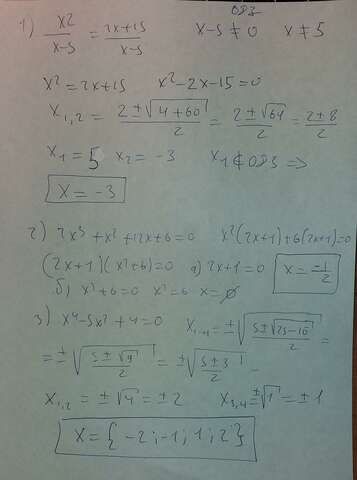 ОДЗ
1) x²/(x-5) = (2x+15)/(x-5) x-5≠0 x≠5
x² = 2x+15 x²-2x-15=0
x₁,₂ = (2±√(4+60))/2 = (2±√64)/2 = (2±8)/2
x₁ = 5 x₂ = -3 x₁ ∉ ОДЗ ⇒
x = -3
2) 2x³+x²+12x+6=0 x²(2x+1)+6(2x+1)=0
(2x+1)(x²+6)=0 а) 2x+1=0 x = -1/2
б) x²+6=0 x²=6 x=∅
3) x⁴-5x²+4=0 x₁₋₄=±√((5±√(25-16))/2) =
= ±√((5±√9)/2) = ±√((5±3)/2) =
x₁,₂ = ±√4 = ±2 x₃,₄=±√1 = ±1
x = {-2; -1; 1; 2}